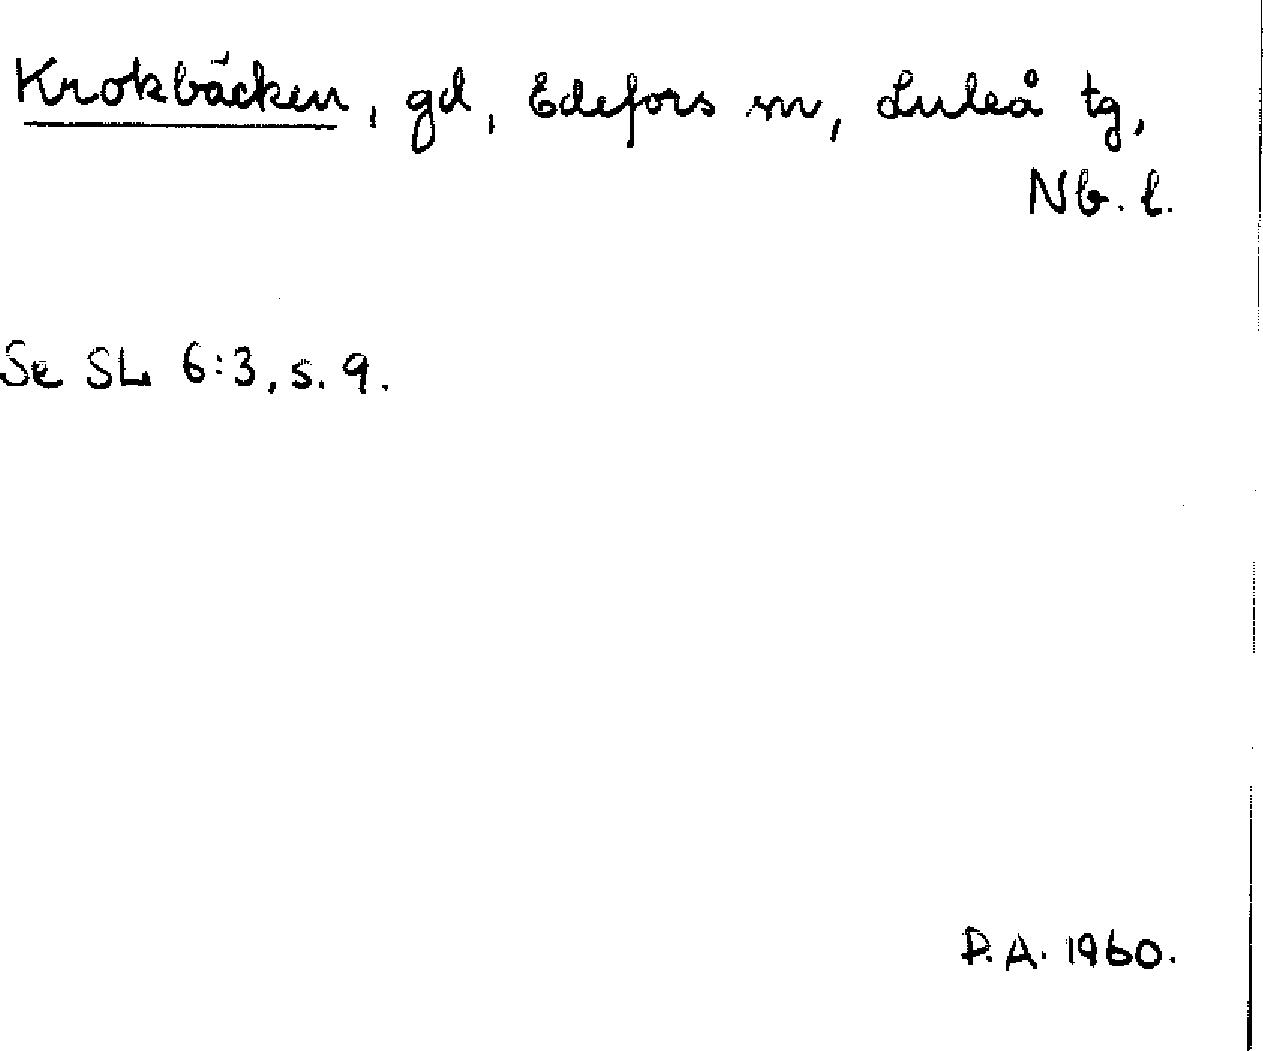 Krokbäcken, gd, Edefors sn, Luleå tg,
Nb. l.
Se SL 6:3, s. 9.
P.A. 1960.